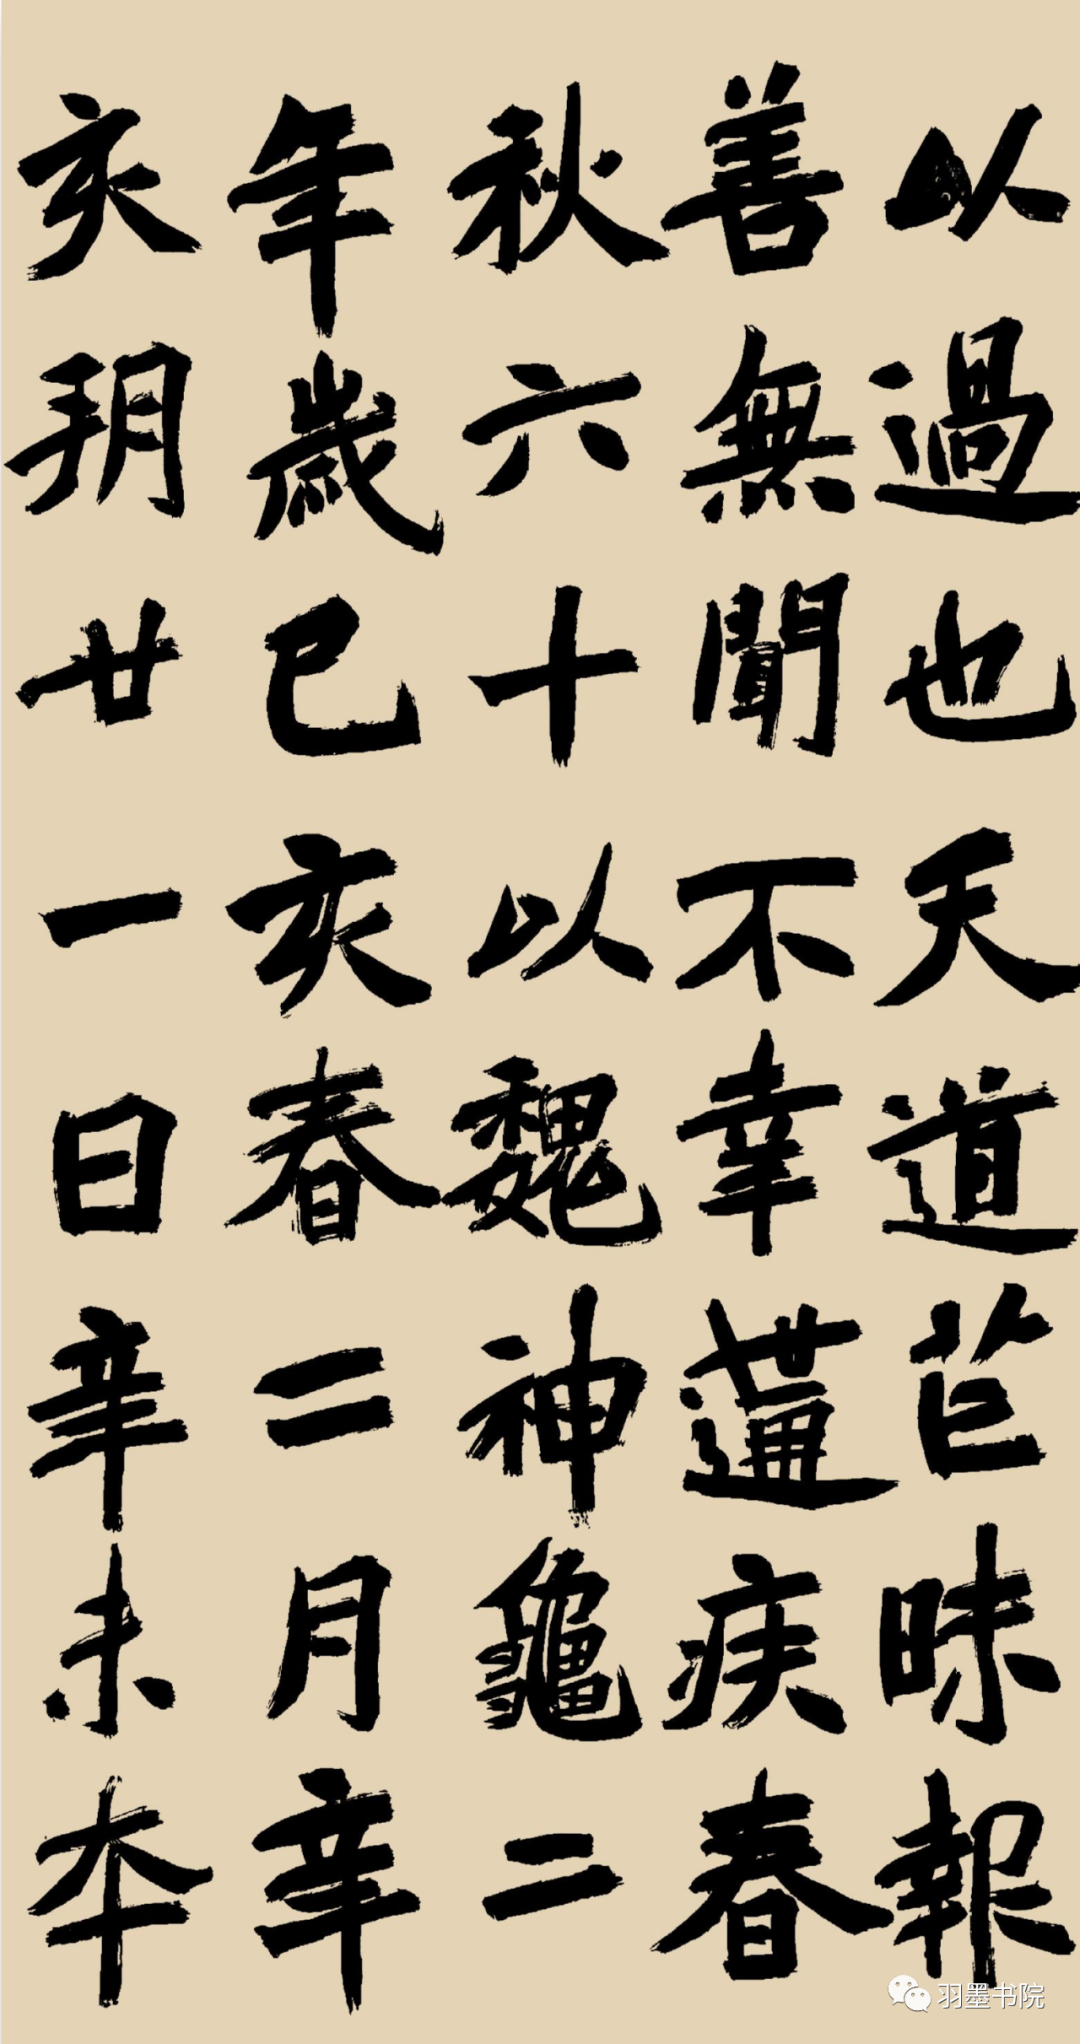 以過也天道芒昧報
善無聞不幸遘疾春
秋六十以魏神龜二
年歲己亥春二月辛
亥朔廿一日辛未卒
羽墨书院